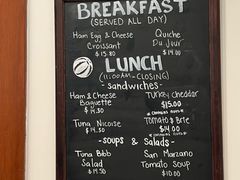 BREAKFAST
(SERVED ALL DAY)
Ham Egg & Cheese
Croissant
$15.50
Quiche
Du Jour
$14.00
LUNCH
(11:00AM-CLOSING)
-sandwiches-
Ham & Cheese
Baguette
$14.50
Turkey Cheddar
$15.00
Tuna Nicoise
$14.50
Tomato & Brie
$14.00
-soups & salads-
Tuna Bibb
Salad
$14.50
San Marzano
Tomato Soup
$10.00